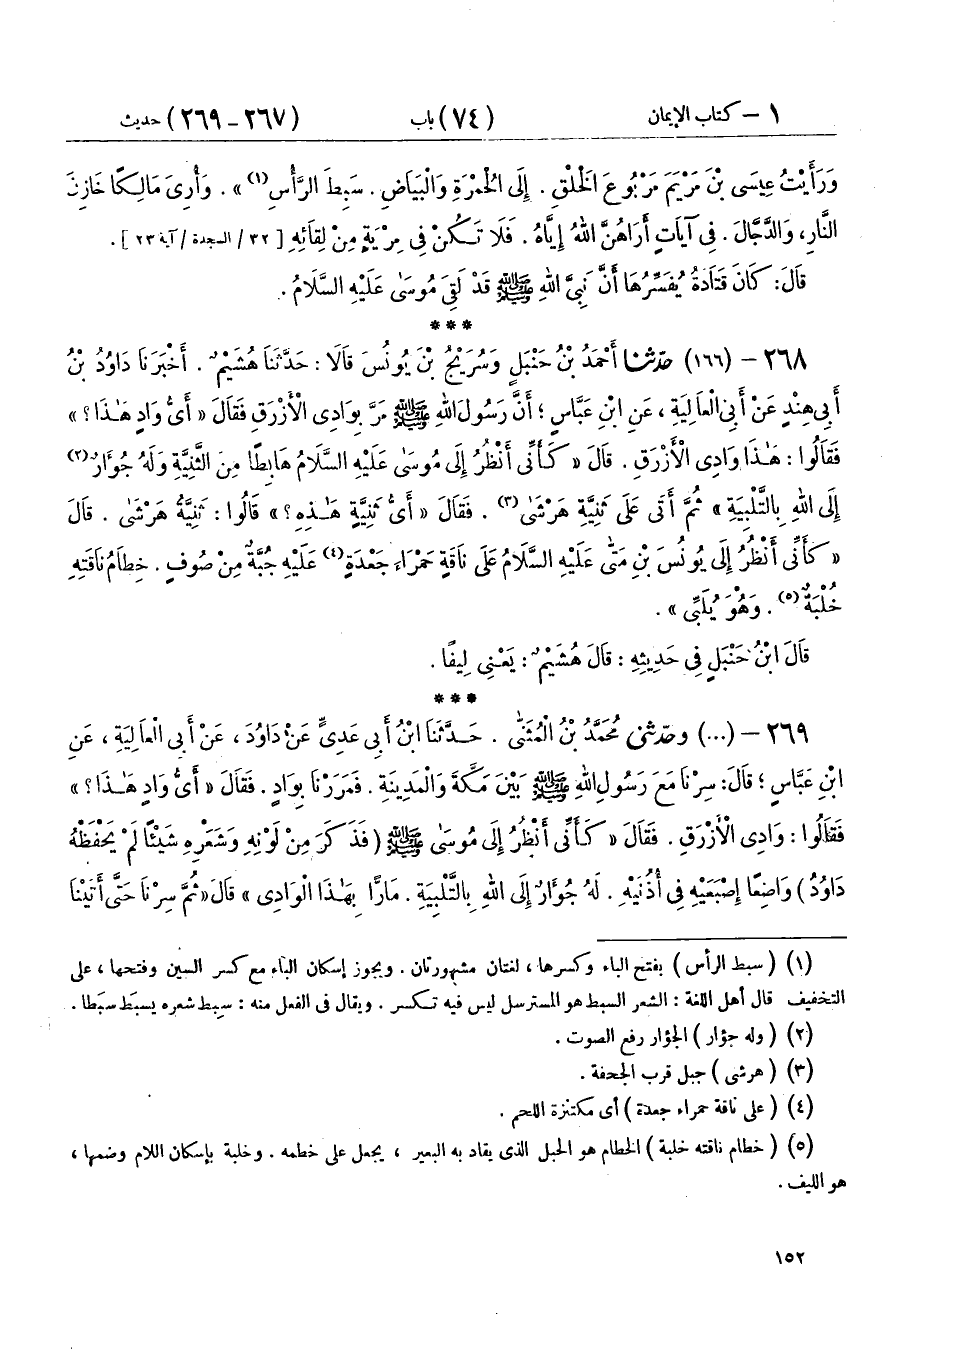 ١ – كتاب الإيمان (٧٤) باب (٢٦٧ – ٢٦٩) حديث
وَرَأَيْتُ عِيسَى بْنَ مَرْيَمَ مَرْبُوعَ الْخَلْقِ . إِلَى الْحُمْرَةِ وَالْبَيَاضِ . سَبِطَ الرَّأْسِ (١) » . وَأُرِىَ مَالِكًا خَازِنَ
النَّارِ، وَالدَّجَّالَ . فِى آيَاتٍ أَرَاهُنَّ اللهُ إِيَّاهُ . فَلَا تَكُنْ فِى مِرْيَةٍ مِنْ لِقَائِهِ [ ٣٢ / السجدة / آية ٢٣ ] .
قَالَ: كَانَ قَتَادَةُ يُفَسِّرُهَا أَنَّ نَبِىَّ اللهِ ﷺ قَدْ لَقِىَ مُوسَىٰ عَلَيْهِ السَّلَامُ .
***
٢٦٨ – (١٦٦) حدّثنا أَحْمَدُ بْنُ حَنْبَلٍ وَسُرَيْجُ بْنُ يُونُسَ قَالَا : حَدَّثَنَا هُشَيْمٌ . أَخْبَرَنَا دَاوُدُ بْنُ
أَبِى هِنْدٍ عَنْ أَبِى الْعَالِيَةِ ، عَنِ ابْنِ عَبَّاسٍ ؛ أَنَّ رَسُولَ اللهِ ﷺ مَرَّ بِوَادِى الْأَزْرَقِ فَقَالَ « أَىُّ وَادٍ هَٰذَا ؟ »
فَقَالُوا : هَٰذَا وَادِى الْأَزْرَقِ . قَالَ « كَأَنِّى أَنْظُرُ إِلَى مُوسَىٰ عَلَيْهِ السَّلَامُ هَابِطًا مِنَ الثَّنِيَّةِ وَلَهُ جُؤَارٌ (٢)
إِلَى اللهِ بِالتَّلْبِيَةِ » ثُمَّ أَتَى عَلَى ثَنِيَّةِ هَرْشَىٰ (٣) . فَقَالَ « أَىُّ ثَنِيَّةٍ هَٰذِهِ ؟ » قَالُوا : ثَنِيَّةُ هَرْشَىٰ . قَالَ
« كَأَنِّى أَنْظُرُ إِلَى يُونُسَ بْنِ مَتَّى عَلَيْهِ السَّلَامُ عَلَى نَاقَةٍ حَمْرَاءَ جَعْدَةٍ (٤) عَلَيْهِ جُبَّةٌ مِنْ صُوفٍ . خِطَامُ نَاقَتِهِ
خُلْبَةٌ (٥) . وَهُوَ يُلَبِّى » .
قَالَ ابْنُ حَنْبَلٍ فِى حَدِيثِهِ : قَالَ هُشَيْمٌ : يَعْنِى لِيفًا .
***
٢٦٩ – (...) وحدّثنى مُحَمَّدُ بْنُ الْمُثَنَّى . حَدَّثَنَا ابْنُ أَبِى عَدِىٍّ عَنْ دَاوُدَ ، عَنْ أَبِى الْعَالِيَةِ ، عَنِ
ابْنِ عَبَّاسٍ ؛ قَالَ: سِرْنَا مَعَ رَسُولِ اللهِ ﷺ بَيْنَ مَكَّةَ وَالْمَدِينَةِ . فَمَرَرْنَا بِوَادٍ . فَقَالَ « أَىُّ وَادٍ هَٰذَا ؟ »
فَقَالُوا : وَادِى الْأَزْرَقِ . فَقَالَ « كَأَنِّى أَنْظُرُ إِلَى مُوسَىٰ ﷺ ( فَذَكَرَ مِنْ لَوْنِهِ وَشَعْرِهِ شَيْئًا لَمْ يَحْفَظْهُ
دَاوُدُ ) وَاضِعًا إِصْبَعَيْهِ فِى أُذُنَيْهِ . لَهُ جُؤَارٌ إِلَى اللهِ بِالتَّلْبِيَةِ . مَارًّا بِهَٰذَا الْوَادِى » قَالَ« ثُمَّ سِرْنَا حَتَّى أَتَيْنَا
(١) ( سبط الرأس ) بفتح الباء وكسرها ، لغتان مشهورتان . ويجوز إسكان الباء مع كسر السين وفتحها ، على
التخفيف قال أهل اللغة : الشعر السبط هو المسترسل ليس فيه تكسر . ويقال فى الفعل منه : سبِط شعره يسبَط سبَطا .
(٢) ( وله جؤار ) الجؤار رفع الصوت .
(٣) ( هرشى ) جبل قرب الجحفة .
(٤) ( على ناقة حمراء جعدة ) أى مكتنزة اللحم .
(٥) ( خطام ناقته خلبة ) الخطام هو الحبل الذى يقاد به البعير ، يجعل على خطمه . وخلبة بإسكان اللام وضمها ،
هو الليف .
١٥٢